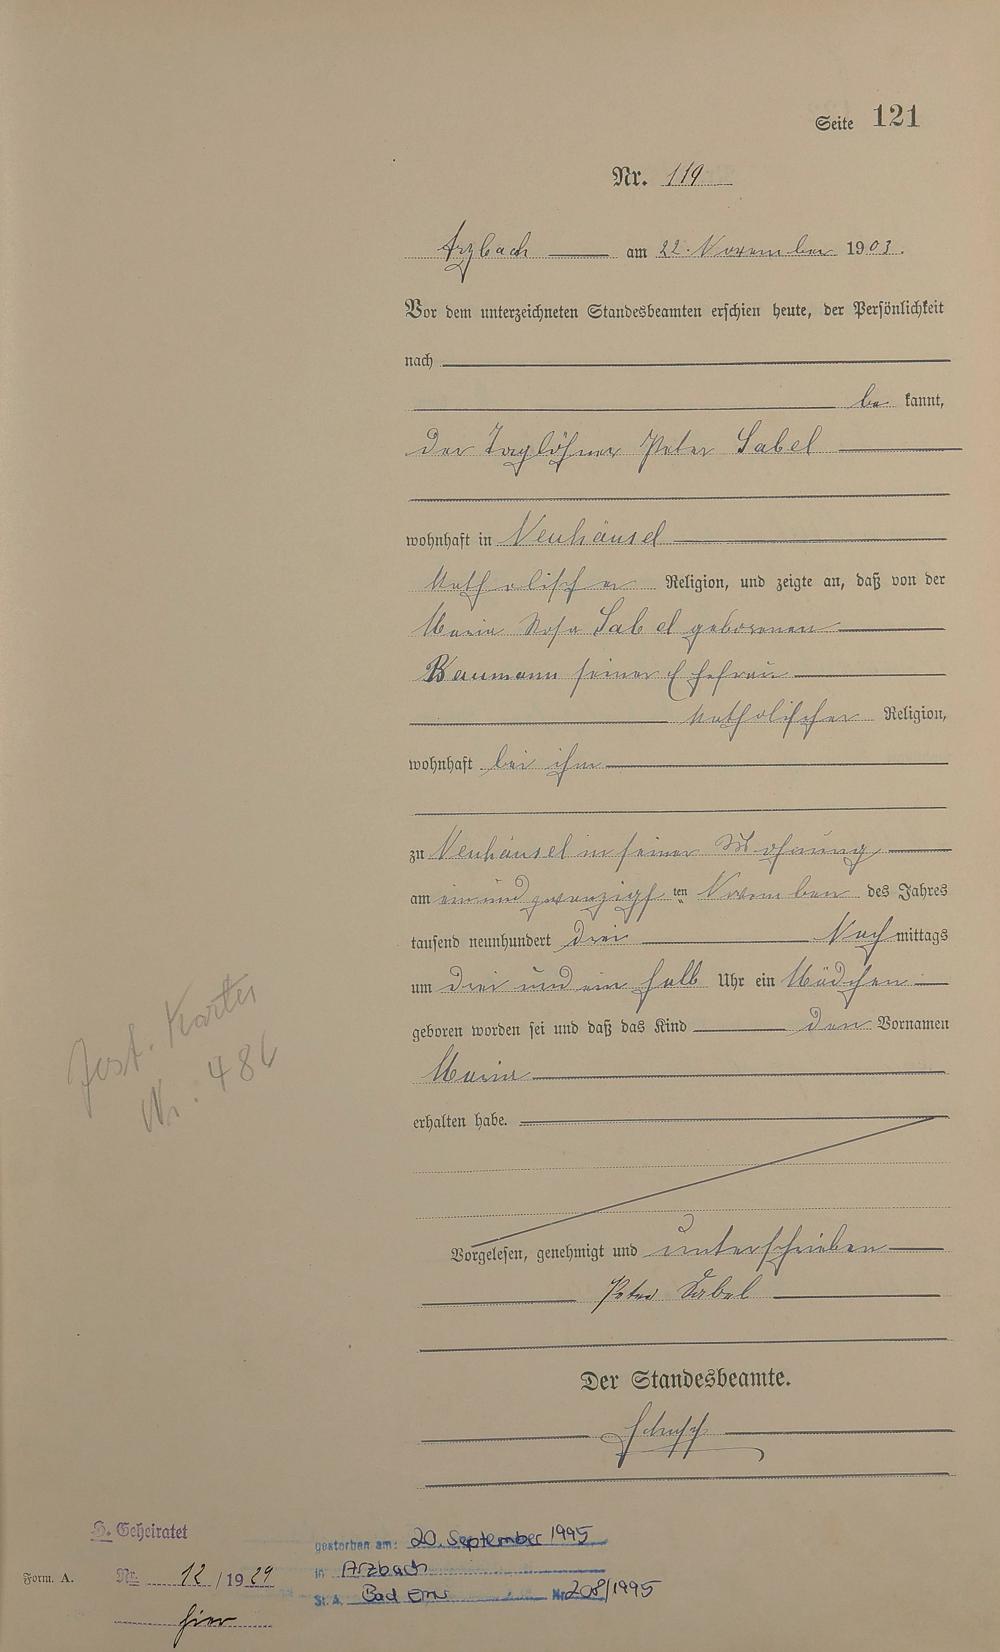 Seite 121
Nr. 119
Arzbach am 22. November 1903.
Vor dem unterzeichneten Standesbeamten erschien heute, der Persönlichkeit
nach
be kannt,
der Taglöhner Peter Sabel
wohnhaft in Neuhäusel
katholischer Religion, und zeigte an, daß von der
Maria Rosa Sabel geborenen
Baumann seiner Ehefrau
katholischer Religion,
wohnhaft bei ihm
zu Neuhäusel in seiner Wohnung
am ein und zwanzigsten November des Jahres
tausend neunhundert drei Nach mittags
um drei und ein halb Uhr ein Mädchen
geboren worden sei und daß das Kind den Vornamen
Maria
erhalten habe.
Vorgelesen, genehmigt und unterschrieben
Peter Sabel
Der Standesbeamte.
Test. Kartei
Nr: 486
Geheiratet
Nr. 12/1929
hier
gestorben am: 20. September 1995
in Arzbach
St. A. Bad Ems Nr. 208/1995
Form. A.